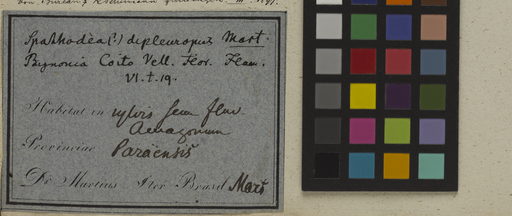 Spathodea (?) dipleuropus Mart.
Bignonia Coito Vell. Flor. Flum.
VI. t. 19.
Habitat in sylvis secus fluv.
Amazonum
Provinciae Paraensis
Dr. Martius Iter Brasil Mart